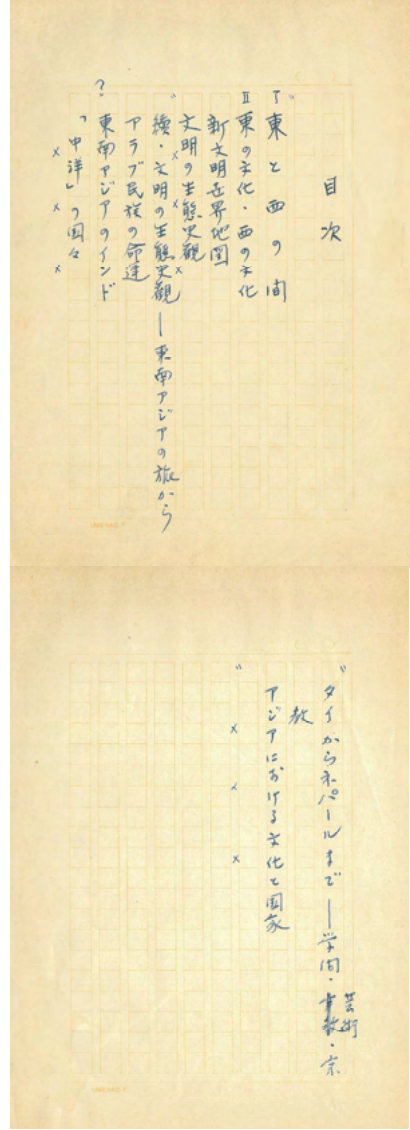 目次
Ⅰ 東と西の間
Ⅱ 東の文化・西の文化
新文明世界地図
文明の生態史観
〃 続・文明の生態史観――東南アジアの旅から
アラブ民族の命運
? 東南アジアのインド
「中洋」の国々
× × ×
〃 タイからネパールまで――学問・芸術・宗
教
アジアにおける文化と国家
〃
× × ×